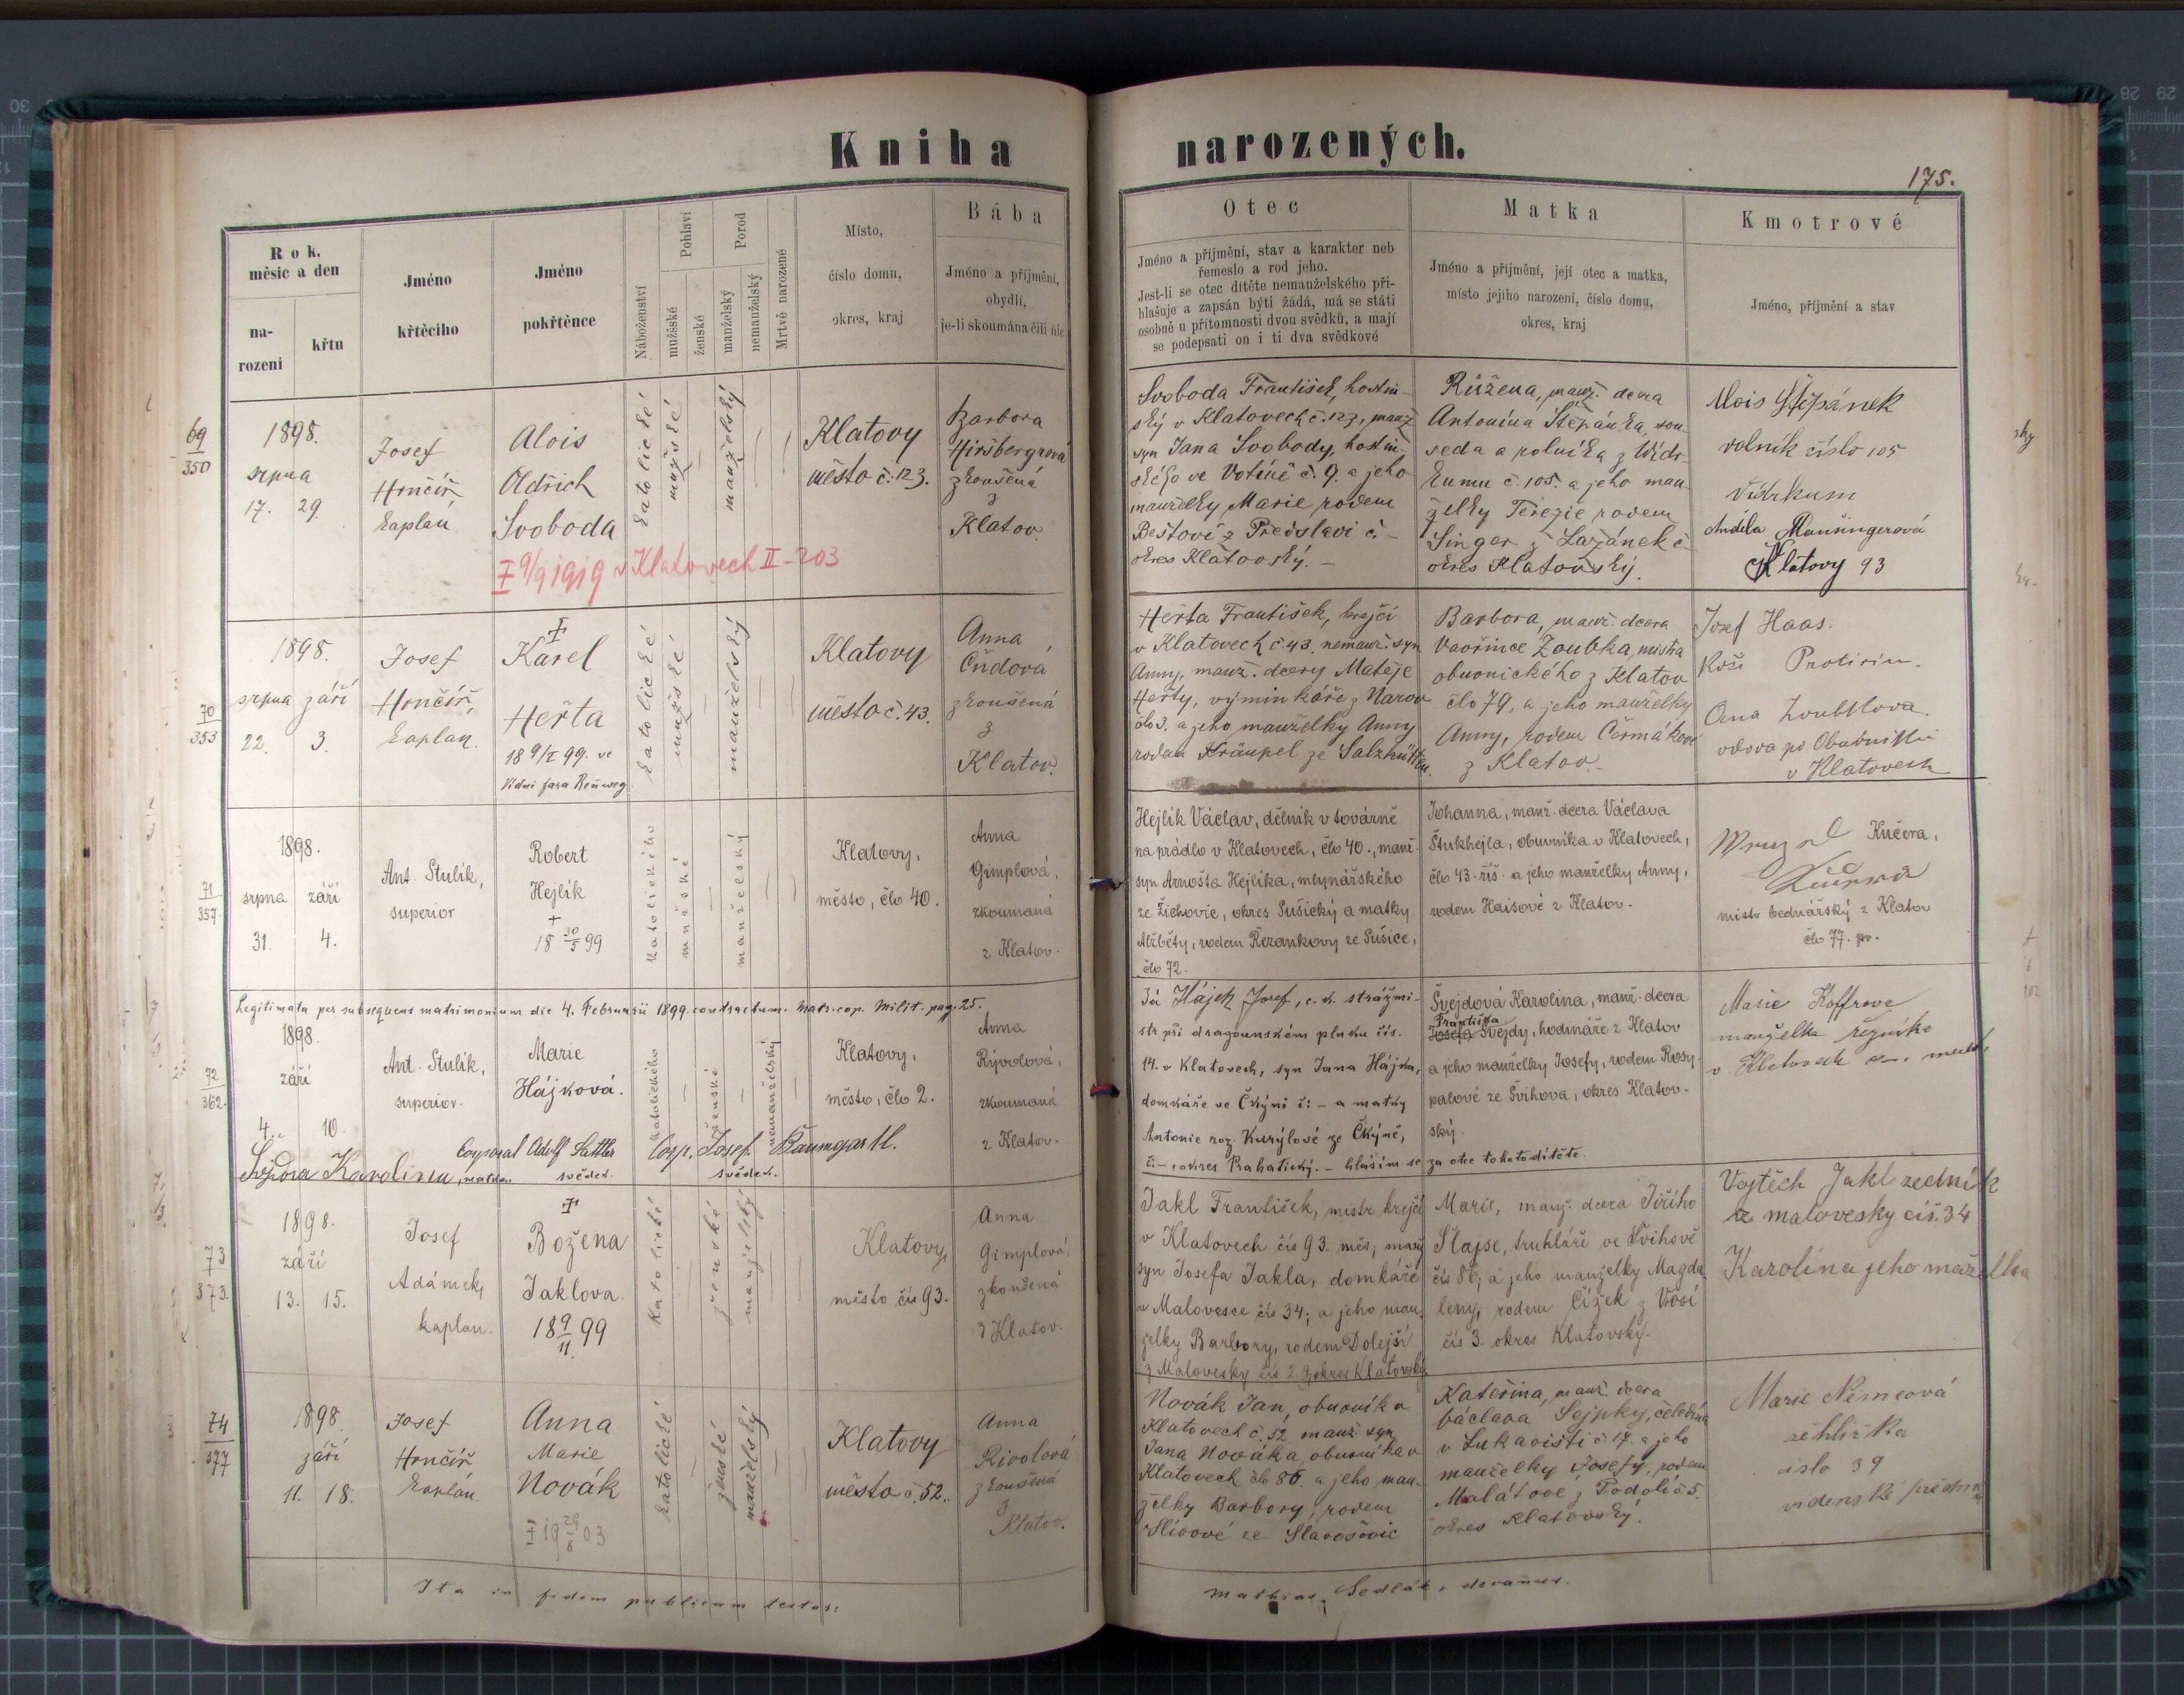 Kniha narozených.
175.
Rok,
měsíc a den
na-
rozeni
křtu
Jméno
křtěcího
Jméno
pokřtěnce
Náboženství
Pohlaví
mužské
ženské
Porod
manželský
nemanželský
Mrtvě narozené
Místo,
číslo domu,
okres, kraj
Bába
Jméno a příjmění,
obydlí,
je-li skoumána čili nic
Otec
Jméno a příjmění, stav a karakter neb
řemeslo a rod jeho.
Jest-li se otec dítěte nemanželského při-
hlašuje a zapsán býti žádá, má se státi
osobně u přítomnosti dvou svědků, a mají
se podepsati on i ti dva svědkové
Matka
Jméno a příjmění, její otec a matka,
místo jejího narození, číslo domu,
okres, kraj
Kmotrové
Jméno, příjmění a stav
69
350
1898.
srpna
17. 29.
Josef
Hrnčíř
kaplan
Alois
Oldřich
Svoboda
9/9 1919 v Klatovech II-203
katolické
mužské
manželský
Klatovy
město č. 123.
Barbora
Hiršbergrová
zkoušená
z
Klatov.
Svoboda František, hostin-
ský v Klatovech č. 123, manž.
syn Jana Svobody, hostin-
ského ve Votíně č. 9. a jeho
manželky Marie rodem
Beštoví z Předslavi č. -
okres Klatovský. -
Růžena, manž. dcera
Antonína Štěpánka, sou-
seda a rolníka z Víds-
kumu č. 105. a jeho man-
želky Terezie rodem
Singer z Lažánek č.
okres Klatovský.
Alois Štěpánek
rolník číslo 105
Vístrkum
Anděla Manšingerová
Klatovy 93
70
353
1898.
srpna září
22. 3.
Josef
Hrnčíř,
kaplan.
Karel
Heřta
18 9/I 99. ve
Vídni fara Renweg
katolické
mužské
manželský
Klatovy
město č. 43.
Anna
Cudová
zkoušená
z
Klatov.
Heřta František, krejčí
v Klatovech č. 43. nemanž. syn
Anny, manž. dcery Matěje
Heřty, výminkáře z Narov
čís 3. a jeho manželky Anny
rodem Kräupel ze Salzhütten.
Barbora, manž. dcera
Vavřince Zoubka, mistra
obuvnického z Klatov
čís 79, a jeho manželky
Anny, rodem Čermákové
z Klatov. -
Josef Haas.
Protivín.
Zoubkova
vdova po Obuvníku
v Klatovech
71
357.
1898.
srpna září
31. 4.
Ant. Stulík,
superior
Robert
Hejlík
+
18 30/5 99
katolického
mužské
manželský
Klatovy,
město, čís 40.
Anna
Gimplová,
zkoumaná
z Klatov.
Hejlík Václav, dělník v továrně
na prádlo v Klatovech, čís 40., manž.
syn Arnošta Hejlíka, mlynářského
ze Žichovic, okres Sušický a matky
Alžběty, rodem Řezankovy ze Sušice,
čís 72.
Johanna, manž. dcera Václava
Štukhejla, obuvníka v Klatovech,
čís 43. říš. a jeho manželky Anny,
rodem Haisové z Klatov.
Kučera,
Kučera
mistr bednářský z Klatov
čís 77. pr.
Legitimata per subsequens matrimonium die 4. Februarii 1899. contractum. Matr. cop. Milit. pag. 25.
72
362.
1898.
září
4. 10.
Ant. Stulík,
superior.
Marie
Hájková.
katolického
ženské
nemanželský
Klatovy,
město, čís 2.
Anna
Rývolová,
zkoumaná
z Klatov.
Švejdova Karolina, matka.
Corporal Adolf Sattler
svědek.
Corp. Josef. Baumgartl.
svědek.
Já Hájek Josef, c. k. strážmi-
str při dragounském pluku čís.
14. v Klatovech, syn Jana Hájka,
domkáře ve Čkýni č: - a matky
Antonie roz. Kurýlové ze Čkýně,
č: -, okres Prahatický. - hlásím se za otce tohoto dítěte.
Švejdová Karolina, manž. dcera
Františka
Josefa Švejdy, hodináře z Klatov
a jeho manželky Josefy, rodem Rosy-
palové ze Švihova, okres Klatov-
ský.
Marie Koffrová
manželka řezníka
v Klatovech
73
373.
1898.
září
13. 15.
Josef
Adámek,
kaplan.
Božena
Jaklova.
18 9/11 99
katolické
ženské
manželský
Klatovy,
město čís 93.
Anna
Gimplová,
zkoušená
z Klatov.
Jakl František, mistr krejčí
v Klatovech čís 93. měs; manž.
syn Josefa Jakla, domkáře
v Malovesce čís 34; a jeho man-
želky Barbory, rodem Dolejší
z Malovesky čís 29, okres Klatovský.
Marie, manž. dcera Jiřího
Šlajse, truhláře ve Švihově
čís 86; a jeho manželky Magda-
leny, rodem Čížek z Vosí
čís 3. okres Klatovský.
Vojtěch Jakl zedník
z malovesky čís. 34
Karolína jeho mažélka
74
377
1898.
září
11. 18.
Josef
Hrnčíř
kaplan.
Anna
Marie
Novák
19 29/8 03
katolické
ženské
manželský
Klatovy
město č. 52.
Anna
Rivolová
zkoušená
z
Klatov.
Novák Jan, obuvník v
Klatovech č. 52. manž. syn
Jana Nováka, obuvníka v
Klatovech čís 86. a jeho man-
želky Barbory, rodem
Slívové ze Slavošovic
Kateřina, manž. dcera
Václava Sejpky, čeledína
v Lukavišti č. 17. a jeho
manželky Josefy, rodem
Malátové z Podolí č. 5.
okres Klatovský.
Marie Němcová
žehlířka
číslo 39
videnské předm
Ita in fidem publicam testor:
Mathias Sedlák, decanus.